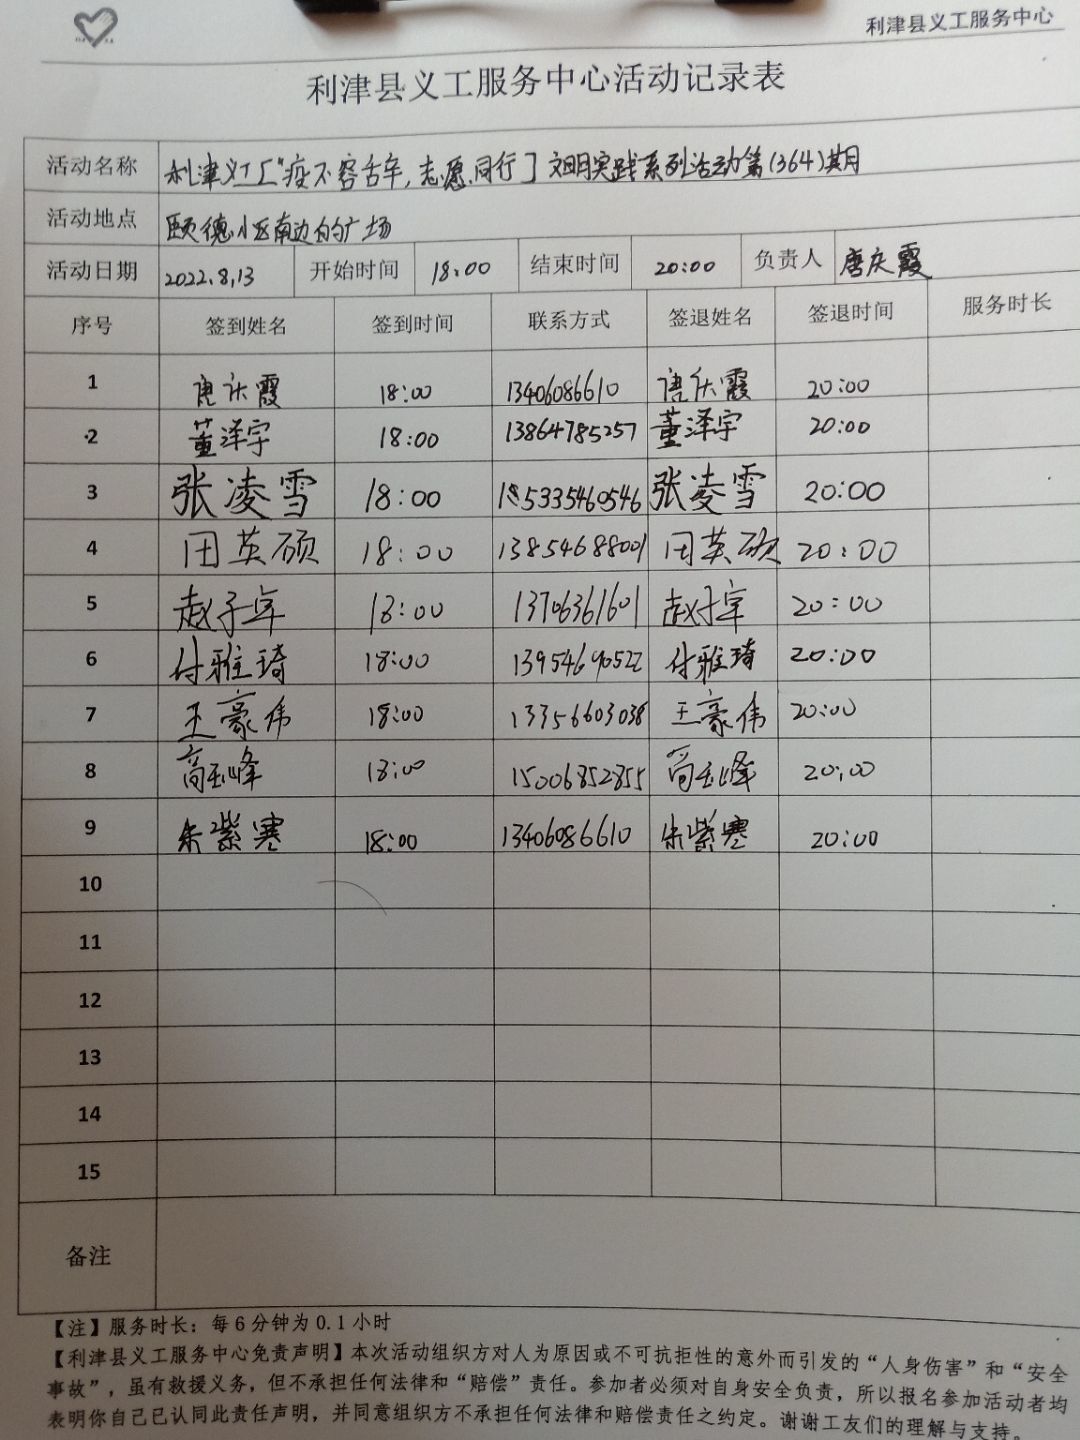 利津县义工服务中心
利津县义工服务中心活动记录表
活动名称 利津义工"疫不容辞,志愿同行】文明实践系列活动第(364)期
活动地点 颐德小区南边的广场
活动日期 2022.8.13 开始时间 18:00 结束时间 20:00 负责人 唐庆霞
序号 签到姓名 签到时间 联系方式 签退姓名 签退时间 服务时长
1 唐庆霞 18:00 13406086610 唐庆霞 20:00
2 董泽宇 18:00 13864785257 董泽宇 20:00
3 张凌雪 18:00 张凌雪 20:00
4 田英硕 18:00 13854688001 田英硕 20:00
5 赵子卓 18:00 13706361601 20:00
6 付雅琦 18:00 13954690522 付雅琦 20:00
7 王豪伟 18:00 13356603038 王豪伟 20:00
8 高玉峰 18:00 15006852855 高玉峰 20:00
9 朱紫寒 18:00 13406086610 朱紫寒 20:00
10
11
12
13
14
15
备注
【注】服务时长：每6分钟为0.1小时
【利津县义工服务中心免责声明】本次活动组织方对人为原因或不可抗拒性的意外而引发的“人身伤害”和“安全
事故”，虽有救援义务，但不承担任何法律和“赔偿”责任。参加者必须对自身安全负责，所以报名参加活动者均
表明你自己已认同此责任声明，并同意组织方不承担任何法律和赔偿责任之约定。谢谢工友们的理解与支持。